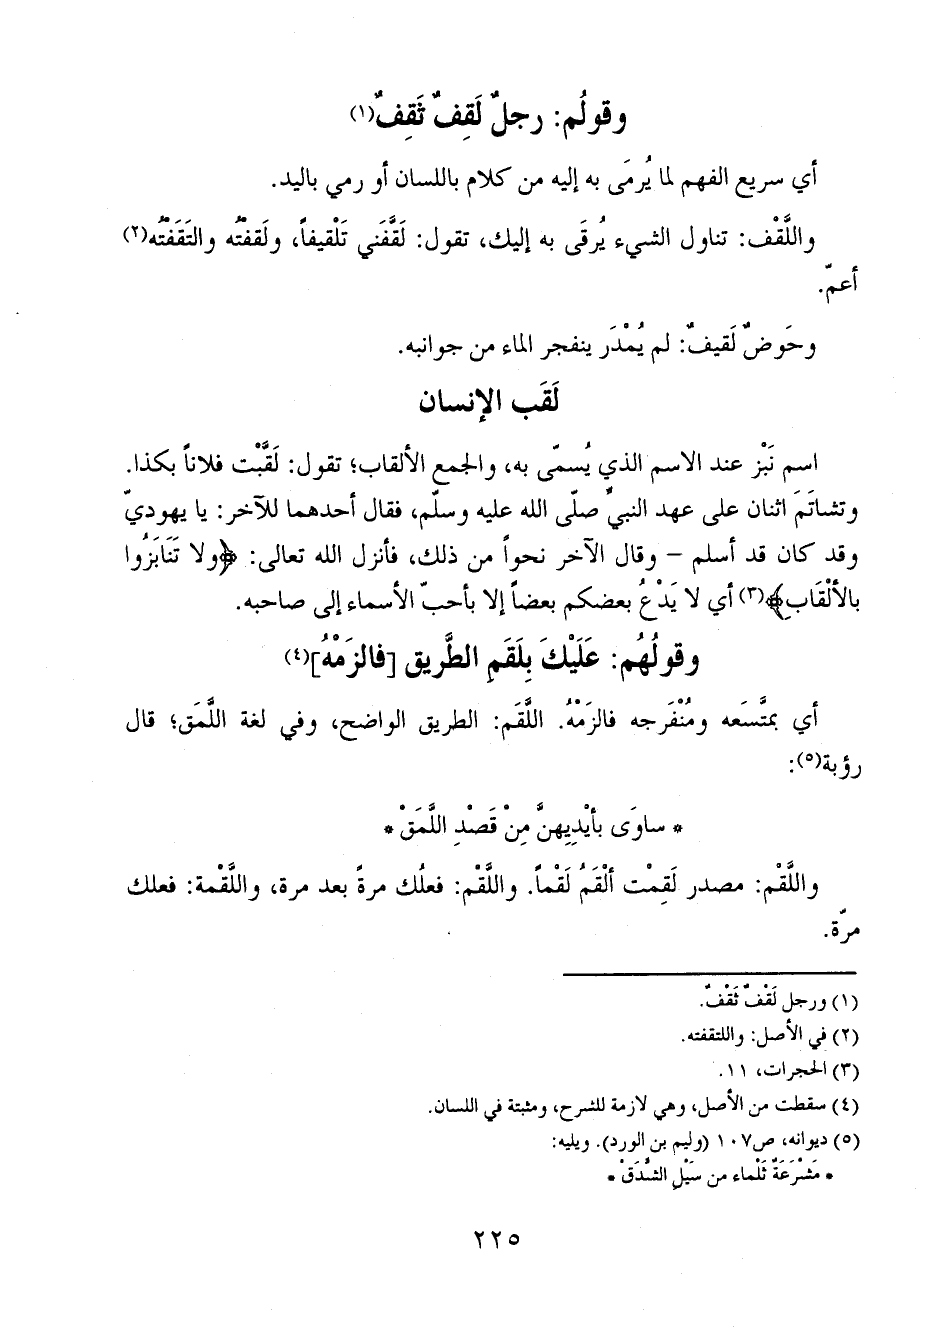 وقولُم: رجلٌ لَقِفٌ ثَقِفٌ(١)
أي سريع الفهم لما يُرمَى به إليه من كلام باللسان أو رمي باليد.
واللَّقْف: تناول الشيء يُرقَى به إليك، تقول: لَقَّفَني تَلْقيفاً، ولَقفتُه والتَقَفْتُه(٢)
أعمّ.
وحَوضٌ لَقيفٌ: لم يُمْدَر ينفجر الماء من جوانبه.
لَقَب الإنسان
اسم نَبْز عند الاسم الذي يُسمّى به، والجمع الألقاب؛ تقول: لَقَّبْت فلاناً بكذا.
وتشاتَمَ اثنان على عهد النبيّ صلّى الله عليه وسلّم، فقال أحدهما للآخر: يا يهوديّ
وقد كان قد أسلم – وقال الآخر نحواً من ذلك، فأنزل الله تعالى: ﴿ولا تَنَابَزُوا
بالألْقَابِ﴾(٣) أي لا يَدْعُ بعضكم بعضاً إلا بأحبّ الأسماء إلى صاحبه.
وقولُهُم: عَلَيْكَ بِلَقَمِ الطَّريق [فالزَمْهُ](٤)
أي بمتَّسَعه ومُنْفَرجه فالزَمْهُ. اللَّقَم: الطريق الواضح، وفي لغة اللَّمَق؛ قال
رؤبة(٥):
* ساوَى بأيْدِيهنَّ مِنْ قَصْدِ اللَّمَقْ *
واللَّقْم: مصدر لَقِمْت ألْقَمُ لَقْماً. واللَّقْم: فعلُك مرةً بعد مرة، واللَّقْمة: فعلك
مرّة.
(١) ورجل لَقْفٌ ثَقْفٌ.
(٢) في الأصل: واللتقفته.
(٣) الحجرات، ١١.
(٤) سقطت من الأصل، وهي لازمة للشرح، ومثبتة في اللسان.
(٥) ديوانه، ص١٠٧ (وليم بن الورد). ويليه:
* مَشْرَعَةٌ ثَلْماء من سَيْلِ الشَّدَقْ *
٢٢٥